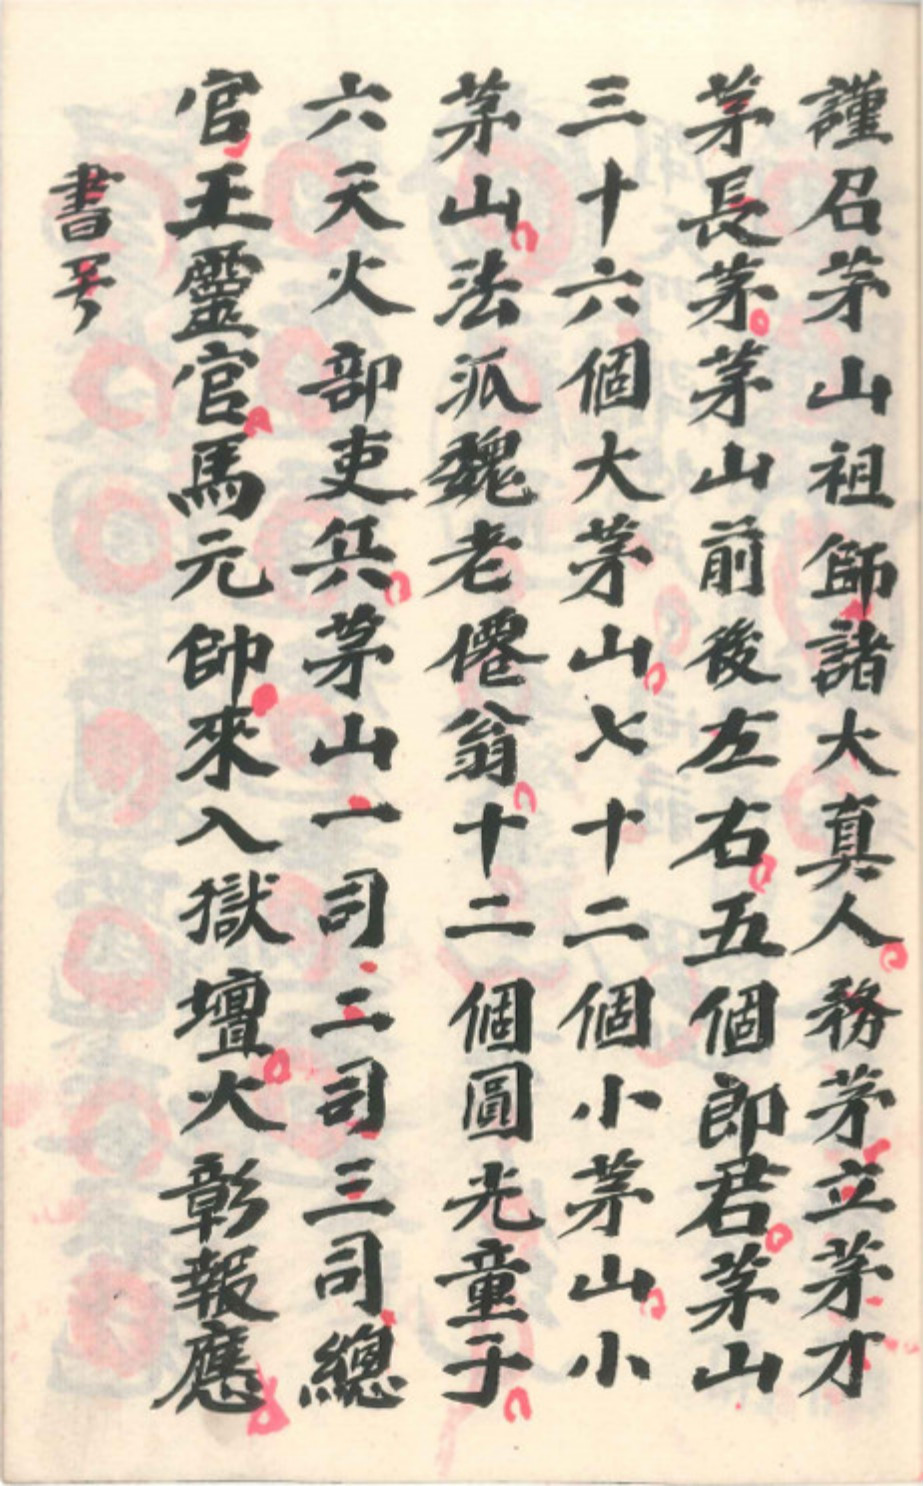 謹召茅山祖師諸大真人務茅立茅才
茅長茅茅山前後左右五個郎君茅山
三十六個大茅山七十二個小茅山小
茅山法派魏老僊翁十二個圓光童子
六天火部吏兵茅山一司二司三司總
官王靈官馬元帥來入獄壇大彰報應
書号